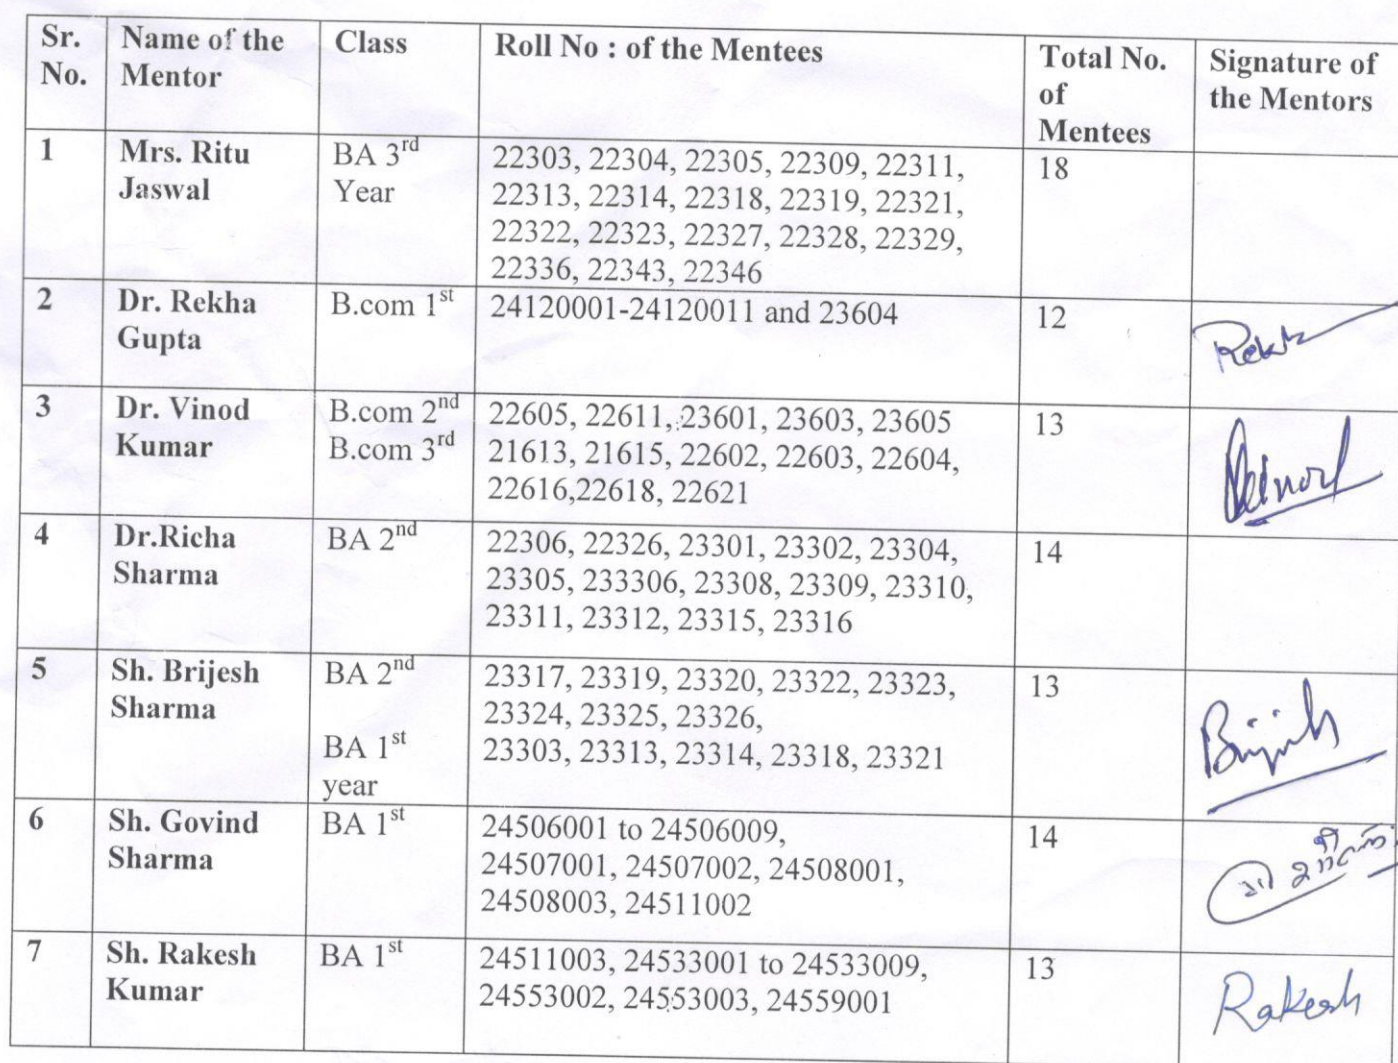 Sr. No.
Name of the Mentor
Class
Roll No : of the Mentees
Total No. of Mentees
Signature of the Mentors
1
Mrs. Ritu Jaswal
BA 3rd Year
22303, 22304, 22305, 22309, 22311,
22313, 22314, 22318, 22319, 22321,
22322, 22323, 22327, 22328, 22329,
22336, 22343, 22346
18
2
Dr. Rekha Gupta
B.com 1st
24120001-24120011 and 23604
12
Rekha
3
Dr. Vinod Kumar
B.com 2nd
B.com 3rd
22605, 22611, 23601, 23603, 23605
21613, 21615, 22602, 22603, 22604,
22616,22618, 22621
13
Vinod
4
Dr.Richa Sharma
BA 2nd
22306, 22326, 23301, 23302, 23304,
23305, 233306, 23308, 23309, 23310,
23311, 23312, 23315, 23316
14
5
Sh. Brijesh Sharma
BA 2nd
BA 1st year
23317, 23319, 23320, 23322, 23323,
23324, 23325, 23326,
23303, 23313, 23314, 23318, 23321
13
Brijesh
6
Sh. Govind Sharma
BA 1st
24506001 to 24506009,
24507001, 24507002, 24508001,
24508003, 24511002
14
7
Sh. Rakesh Kumar
BA 1st
24511003, 24533001 to 24533009,
24553002, 24553003, 24559001
13
Rakesh